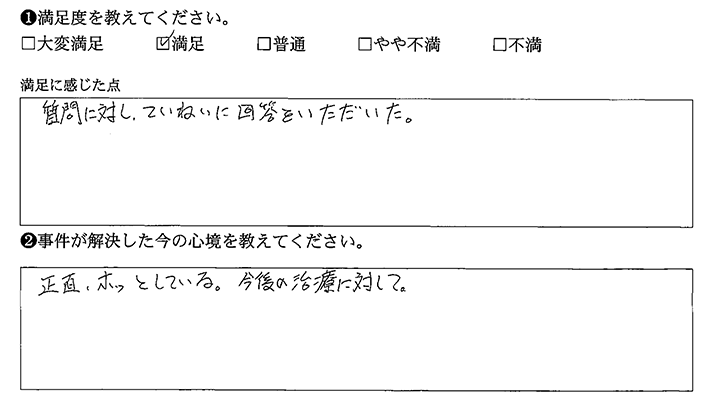 ❶満足度を教えてください。
□大変満足 ☑満足 □普通 □やや不満 □不満
満足に感じた点
質問に対し、ていねいに回答をいただいた。
❷事件が解決した今の心境を教えてください。
正直、ホッとしている。今後の治療に対して。